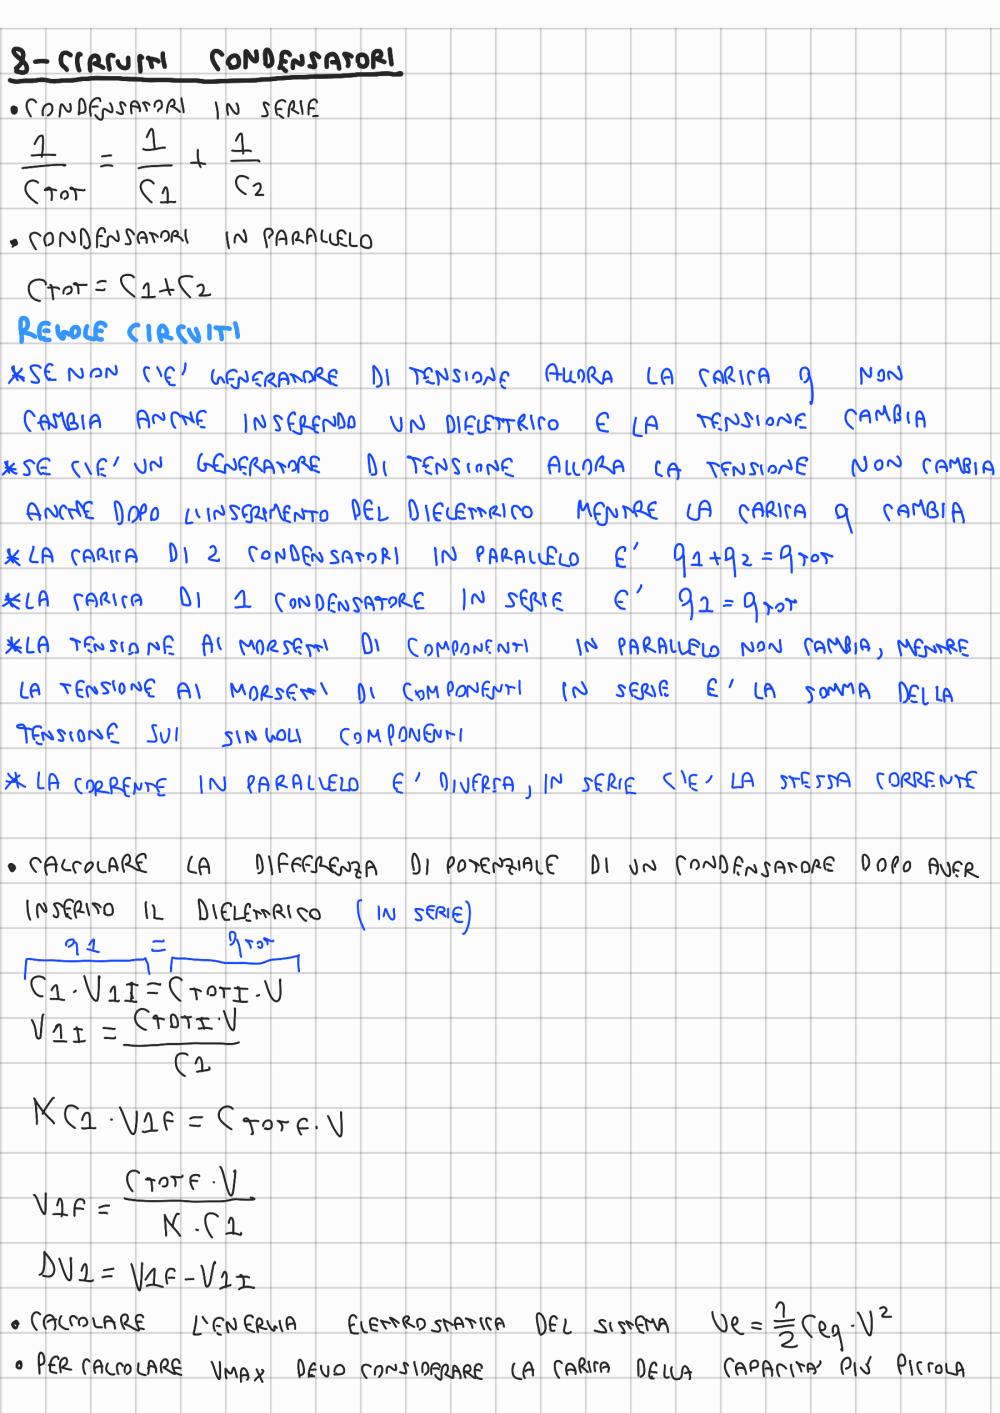 8-CIRCUITI CONDENSATORI
• CONDENSATORI IN SERIE
1/CTOT = 1/C1 + 1/C2
• CONDENSATORI IN PARALLELO
CTOT = C1+C2
REGOLE CIRCUITI
*SE NON C'E' GENERATORE DI TENSIONE ALLORA LA CARICA q NON
CAMBIA ANCHE INSERENDO UN DIELETTRICO E LA TENSIONE CAMBIA
*SE C'E' UN GENERATORE DI TENSIONE ALLORA LA TENSIONE NON CAMBIA
ANCHE DOPO L'INSERIMENTO DEL DIELETTRICO MENTRE LA CARICA q CAMBIA
*LA CARICA DI 2 CONDENSATORI IN PARALLELO E' q1+q2=qTOT
*LA CARICA DI 1 CONDENSATORE IN SERIE E' q1=qTOT
*LA TENSIONE AI MORSETTI DI COMPONENTI IN PARALLELO NON CAMBIA, MENTRE
LA TENSIONE AI MORSETTI DI COMPONENTI IN SERIE E' LA SOMMA DELLA
TENSIONE SUI SINGOLI COMPONENTI
* LA CORRENTE IN PARALLELO E' DIVERSA, IN SERIE C'E' LA STESSA CORRENTE
• CALCOLARE LA DIFFERENZA DI POTENZIALE DI UN CONDENSATORE DOPO AVER
INSERITO IL DIELETTRICO (IN SERIE)
q1 = qTOT
C1·V1I = CTOTI·V
V1I = CTOTI·V / C1
KC1·V1F = CTOTF·V
V1F = CTOTF·V / K·C1
DV1 = V1F-V1I
• CALCOLARE L'ENERGIA ELETTROSTATICA DEL SISTEMA Ue = 1/2 Ceq·V²
• PER CALCOLARE VMAX DEVO CONSIDERARE LA CARICA DELLA CAPACITA' PIÙ PICCOLA